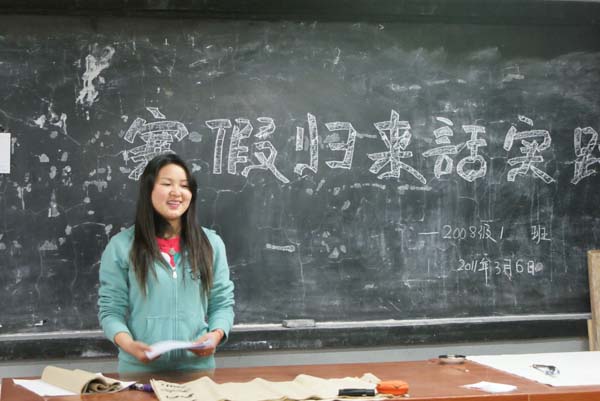 寒假归来话实践
—2008级1班
2011年3月6日